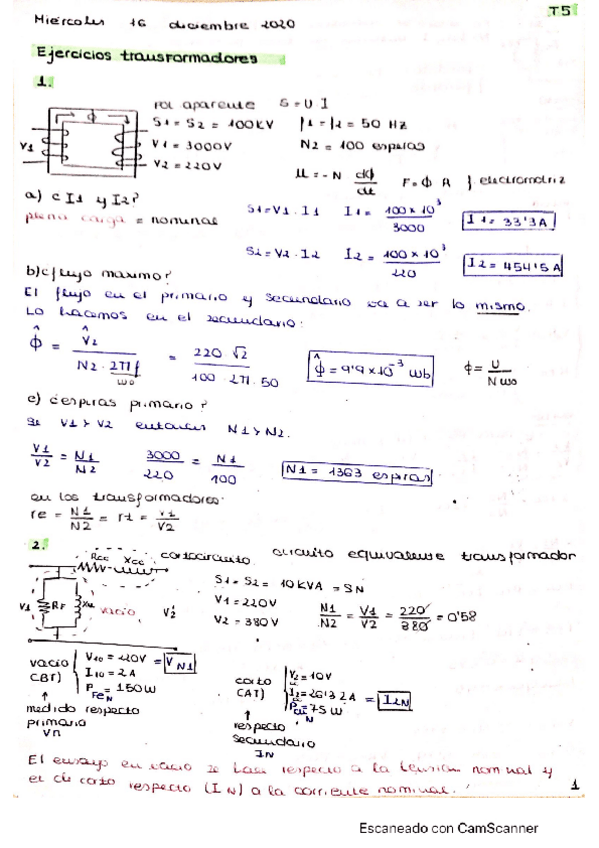 T5
Miércoles 16 diciembre 2020
Ejercicios transformadores
1.
pot aparente S = U I
S1 = S2 = 100KV f1 = f2 = 50 Hz
V1 = 3000V N2 = 100 espiras
V2 = 220V
ϕ
V1
μ = - N dϕ/dt F = ϕ A } electromotriz
a) ¿I1 y I2?
plena carga = nominal
S1 = V1 · I1 I1 = 100 x 10³/3000 I1 = 33'3A
S2 = V2 · I2 I2 = 100 x 10³/220 I2 = 454'5A
b) ¿flujo maximo?
El flujo en el primario y secundario va a ser lo mismo.
Lo hacemos en el secundario:
ϕ̂ = V̂2/N2 · 2πf = 220 √2/100 · 2π · 50 ϕ̂ = 9'9 x 10⁻³ Wb ϕ = U/N ωo
ωo
c) ¿espiras primario?
Si V1 > V2 entonces N1 > N2.
V1/V2 = N1/N2 3000/220 = N1/100 N1 = 1363 espiras
en los transformadores:
re = N1/N2 = rt = V1/V2
2.
Rcc Xcc cortocircuito circuito equivalente transformador
V1 RF Xμ vacio V2'
S1 = S2 = 10KVA = SN
V1 = 220V
V2 = 380V
N1/N2 = V1/V2 = 220/380 = 0'58
vacio (BT)
V10 = 220V = VN1
I10 = 2A
PFeN = 150W
↑
medido respecto
primario
Vn
corto (AT)
V2 = 10V
I2 = 26'32A = I2N
PCuN = 75W
↑
respecto
secundario
IN
El ensayo en vacio se hace respecto a la tensión nominal y
el de corto respecto (IN) a la corriente nominal.
1
Escaneado con CamScanner